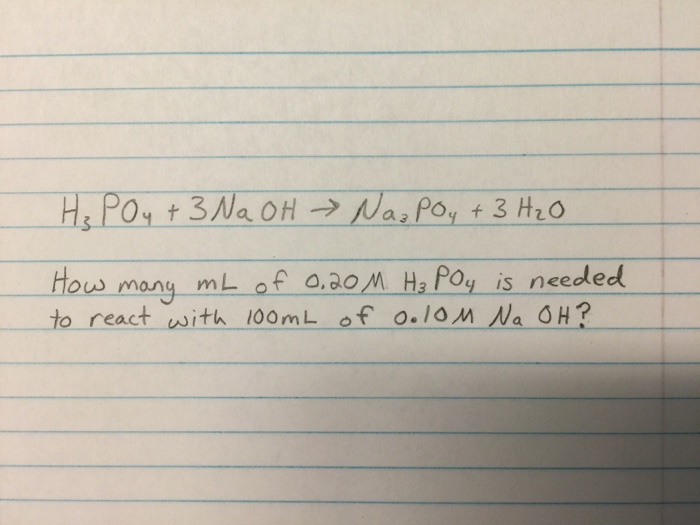 H₃PO₄ + 3NaOH → Na₃PO₄ + 3H₂O
How many mL of 0.20M H₃PO₄ is needed
to react with 100mL of 0.10M Na OH?